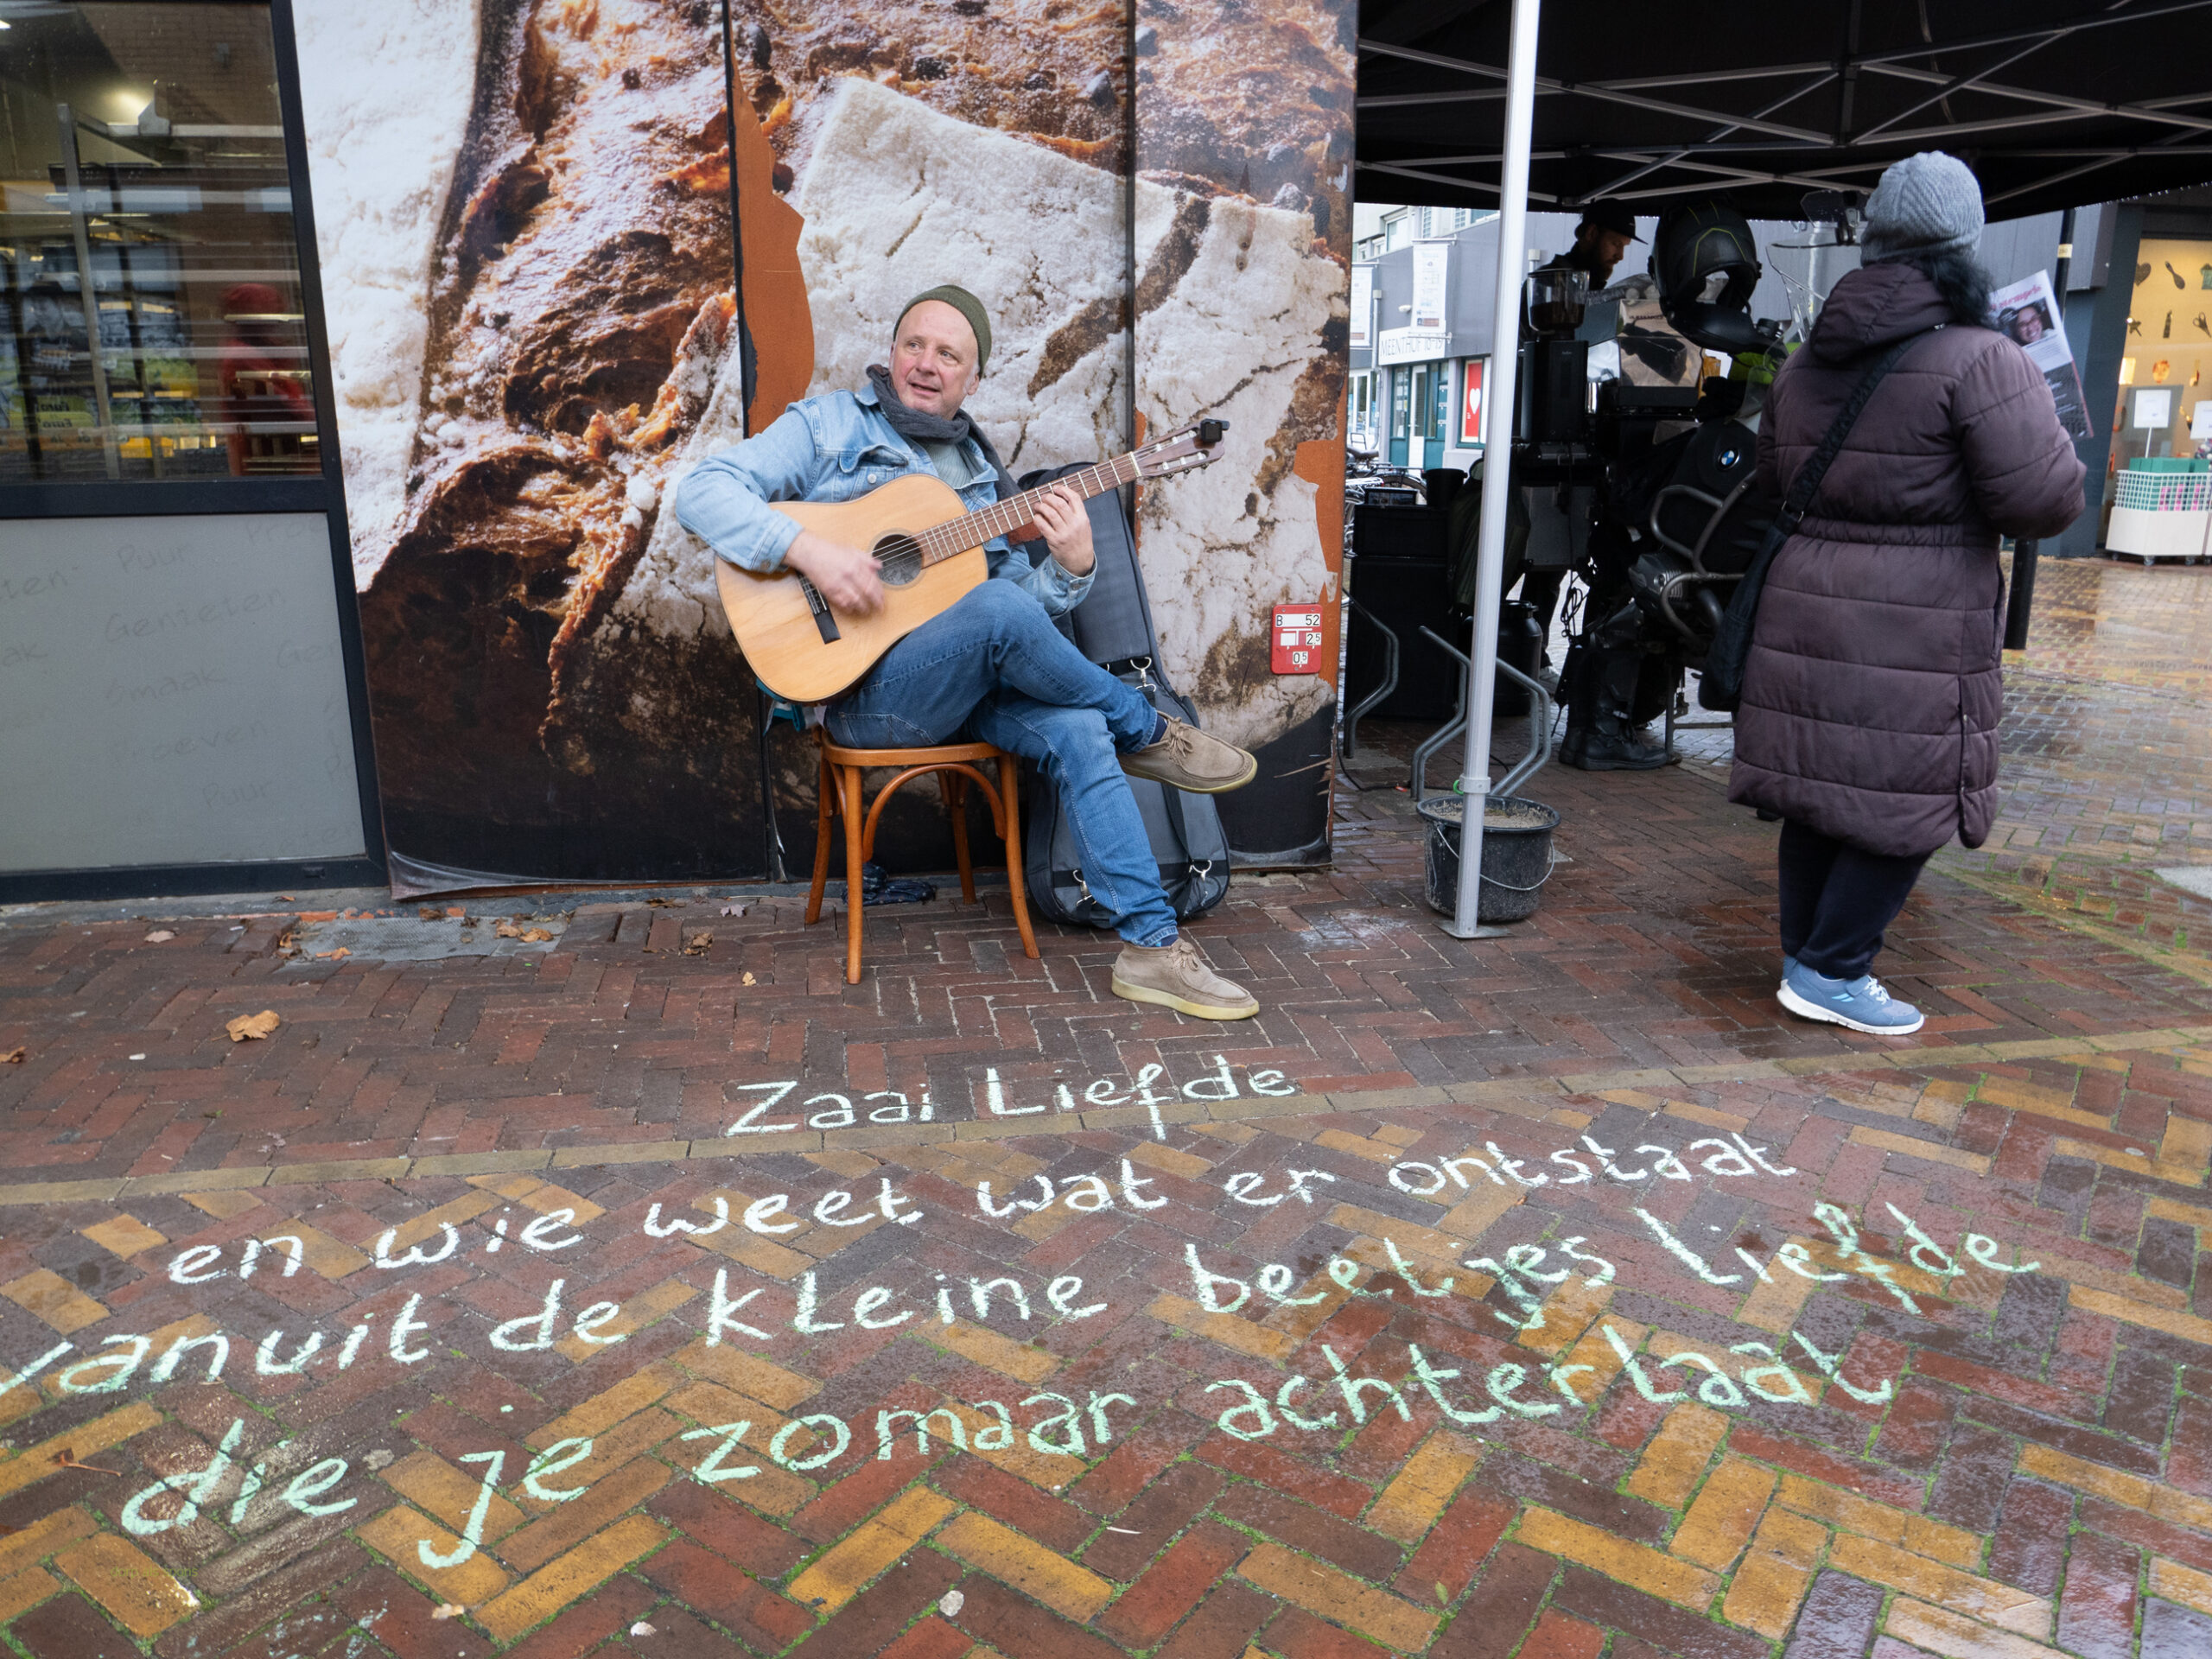 MEENTHOF
B 52
2.5
0.5
Puur
Genieten
Smaak
Proeven
Puur
Zaai Liefde
en wie weet wat er ontstaat
vanuit de kleine beetjes liefde
die je zomaar achterlaat